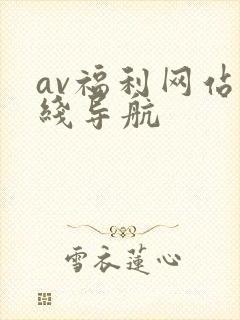 av福利网佔
綫导航
雪衣莲心